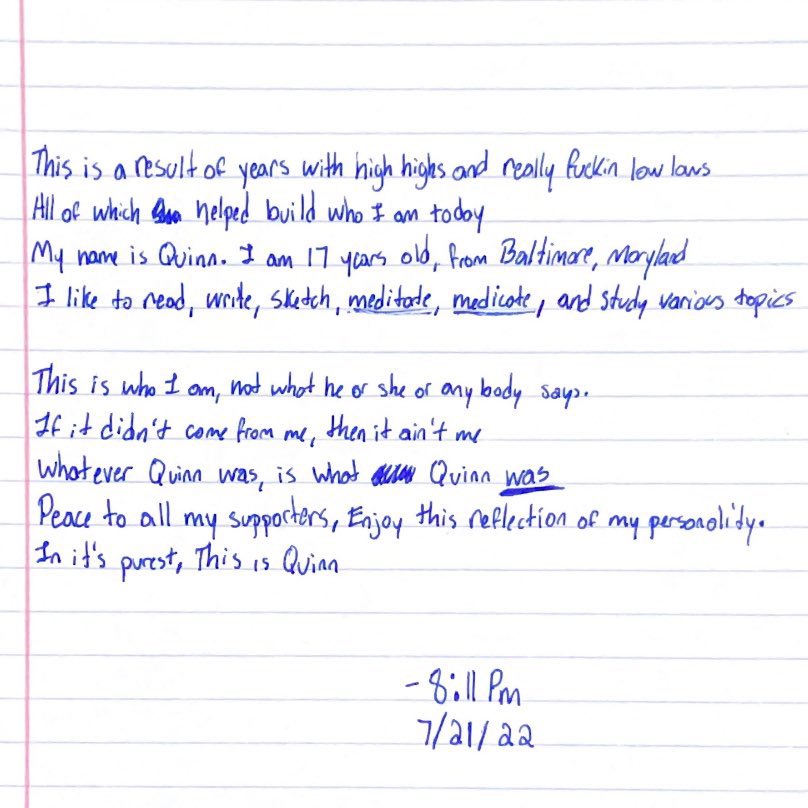 This is a result of years with high highs and really fuckin low lows
All of which helped build who I am today
My name is Quinn. I am 17 years old, from Baltimore, Maryland
I like to read, write, sketch, meditate, medicate, and study various topics
This is who I am, not what he or she or any body says.
If it didn't come from me, then it ain't me
Whatever Quinn was, is what Quinn was
Peace to all my supporters, Enjoy this reflection of my personality.
In it's purest, This is Quinn
-8:11 PM
7/21/22